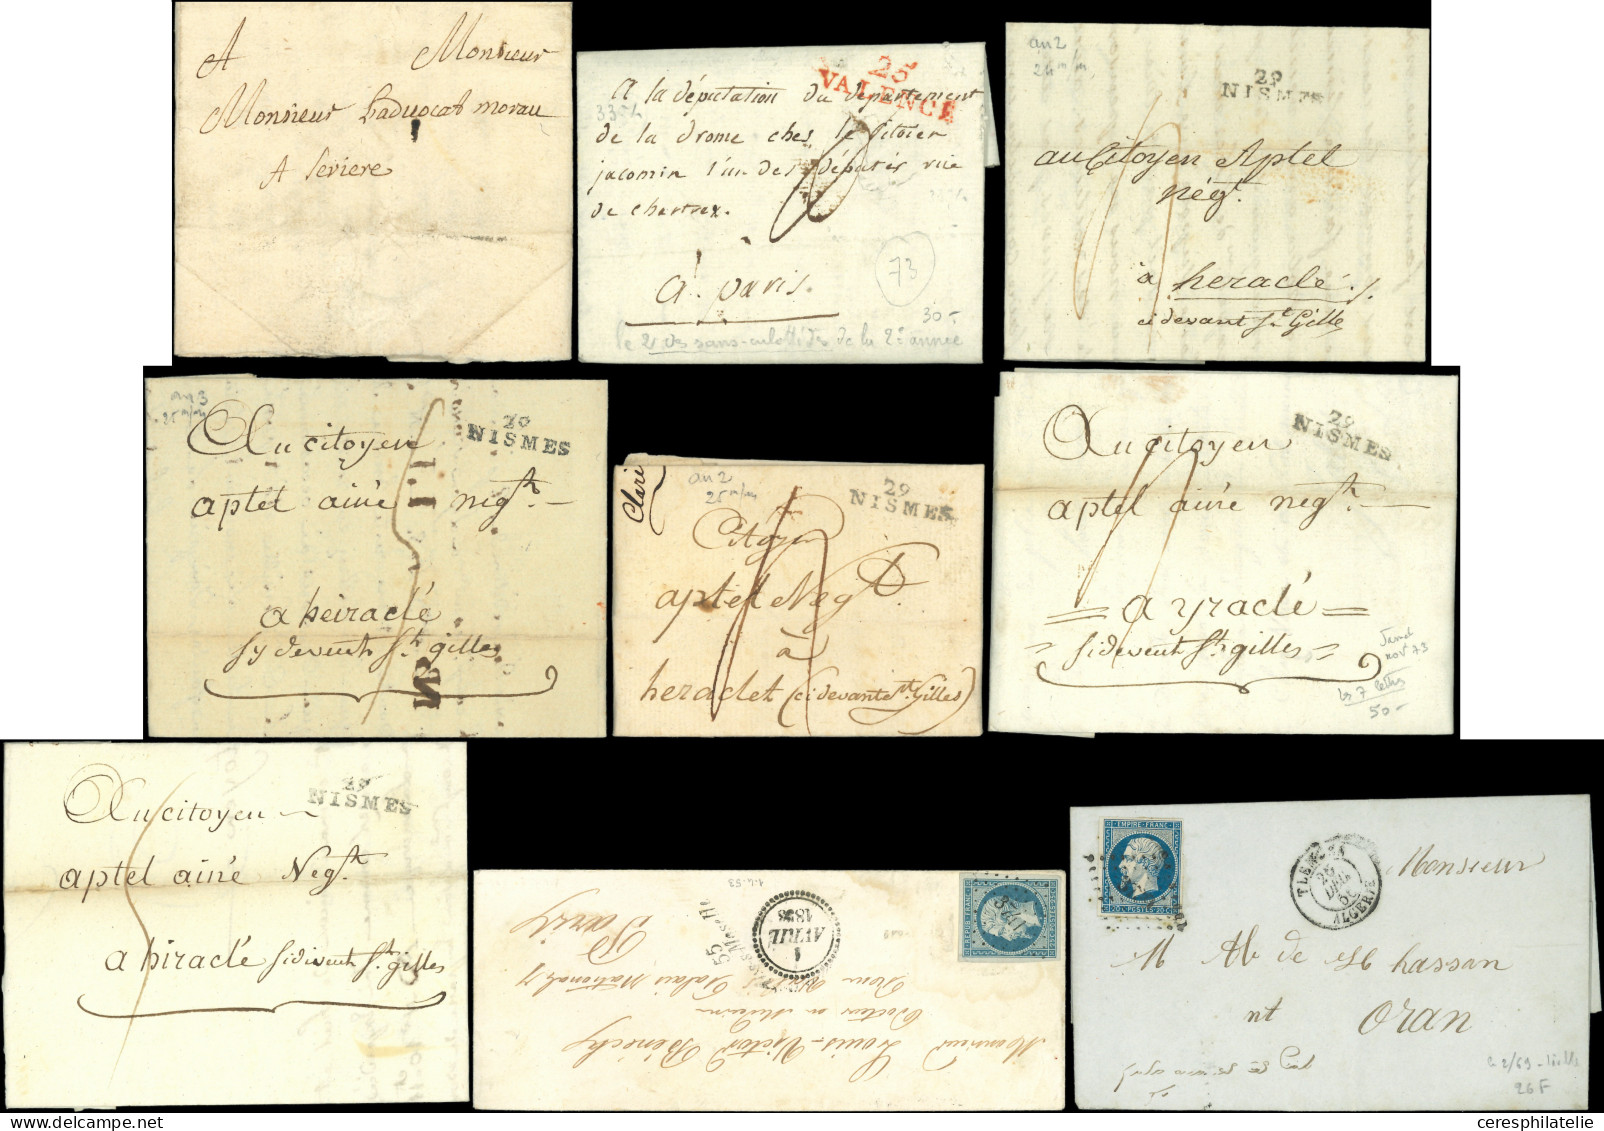 A Monsieur
Monsieur Laduocat morau
A Seviere
25
VALENCE
A la députation du département
335 L
de la drome ches le Citoien
jacomin l'un des députés rue
de chartrex.
73
à paris.
30-
le 2 des sans-culottides de la 2e année
an 2
24 m/m
29
NISMES
au Citoyen Aptel
négt.
à heraclé
ci devant St Gille
an 3
25 m/m
29
NISMES
Au citoyen
aptel ainé negt
a heiraclé
sy devent St gilles
Cleri
an 2
25 m/m
29
NISMES
Citoyen
aptel Negt.
à
heraclet (ci devante St Gilles)
29
NISMES
Au citoyen
aptel ainé negt
= a yraclé =
= sidevent St gilles =
nov 73
les 7 lettres
50-
29
NISMES
Au citoyen
aptel ainé Negt.
a hiraclé sidivent St gilles
REPUB FRANC
1
AVRIL
1853
55
1.4.53
Monsieur Louis-Victor Bénéchy
Docteur en Médecine
Paris
EMPIRE FRANC
20c POSTES 20c
TLEMCEN
26
DEC
60
ALGERIE
Monsieur
M Ab de St hassan
nt Oran
26 F
ceresphilatelie